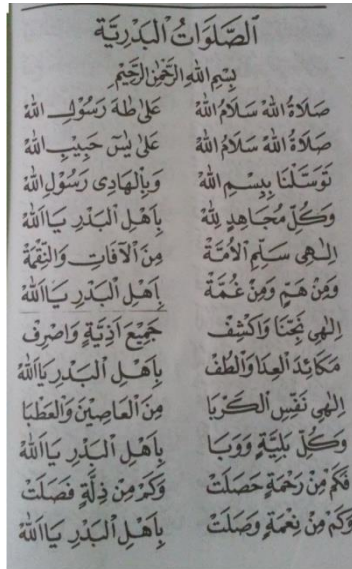 الصَّلَوَاتُ الْبَدْرِيَّة
بِسْمِ اللهِ الرَّحْمٰنِ الرَّحِيْمِ
صَلَاةُ اللهْ سَلَامُ اللهْ عَلٰى طٰهَ رَسُوْلِ اللهْ
صَلَاةُ اللهْ سَلَامُ اللهْ عَلٰى يٰسٓ حَبِيْبِ اللهْ
تَوَسَّلْنَا بِبِسْمِ اللهْ وَبِالْهَادِى رَسُوْلِ اللهْ
وَكُلِّ مُجَاهِدٍ لِلّٰهْ بِاَهْلِ الْبَدْرِ يَا اَللهْ
اِلٰهِى سَلِّمِ الْاُمَّةْ مِنَ الْآفَاتِ وَالنِّقْمَةْ
وَمِنْ هَمٍّ وَمِنْ غُمَّةْ بِاَهْلِ الْبَدْرِ يَا اَللهْ
اِلٰهِى نَجِّنَا وَاكْشِفْ جَمِيْعَ اَذِيَّةٍ وَاصْرِفْ
مَكَائِدَ الْعِدَا وَالْطُفْ بِاَهْلِ الْبَدْرِ يَا اَللهْ
اِلٰهِى نَفِّسِ الْكُرَبَا مِنَ الْعَاصِيْنَ وَالْعَطْبَا
وَكُلِّ بَلِيَّةٍ وَوَبَا بِاَهْلِ الْبَدْرِ يَا اَللهْ
فَكَمْ مِنْ رَحْمَةٍ حَصَلَتْ وَكَمْ مِنْ ذِلَّةٍ فَصَلَتْ
وَكَمْ مِنْ نِعْمَةٍ وَصَلَتْ بِاَهْلِ الْبَدْرِ يَا اَللهْ